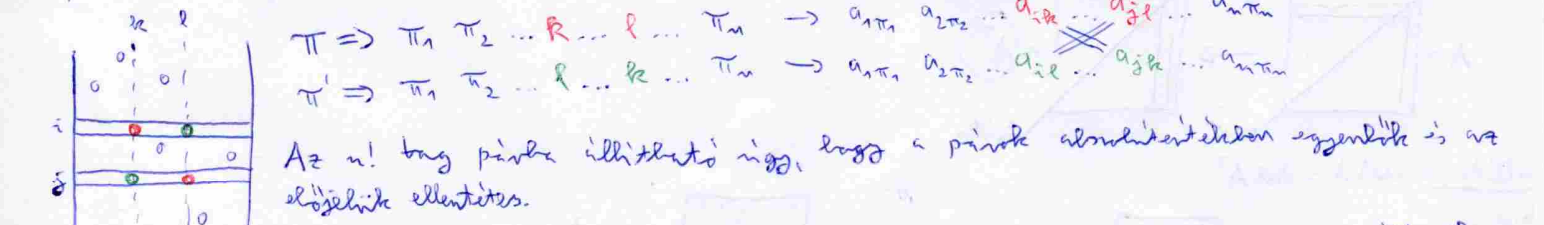 k l
π => π₁ π₂ ... k ... l ... πₙ → a₁π₁ a₂π₂ ... aᵢₖ ... aⱼₗ ... aₙπₙ
π' => π₁ π₂ ... l ... k ... πₙ → a₁π₁ a₂π₂ ... aᵢₗ ... aⱼₖ ... aₙπₙ
i
Az n! tag párba állítható úgy, hogy a párok abszolútértékben egyenlők és az
j
előjelük ellentétes.